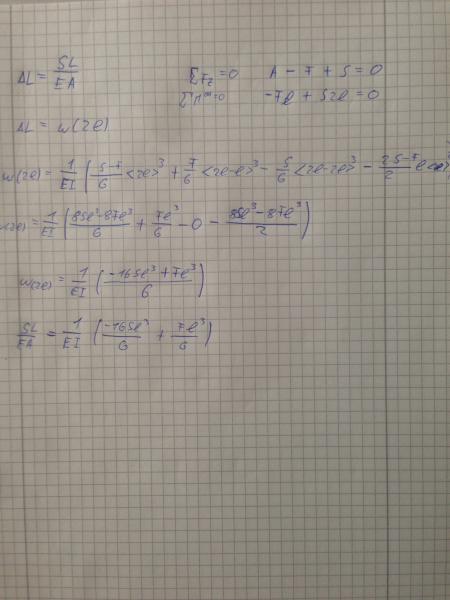 ΔL = SL/EA    ΣF_z = 0    A − 7 + S = 0
ΣM = 0    −7l + S2l = 0
ΔL = w(2l)
w(2l) = 1/EI ( S−7/6 <2l>³ + 7/6 <2l−l>³ − S/6 <2l−2l>³ − 2S−7/2 l
w(2l) = 1/EI ( 8Sl³−8·7l³/6 + 7l³/6 − 0 − 8Sl³−8·7l³/2 )
w(2l) = 1/EI ( −16Sl³+7l³/6 )
SL/EA = 1/EI ( −16Sl³/6 + 7l³/6 )